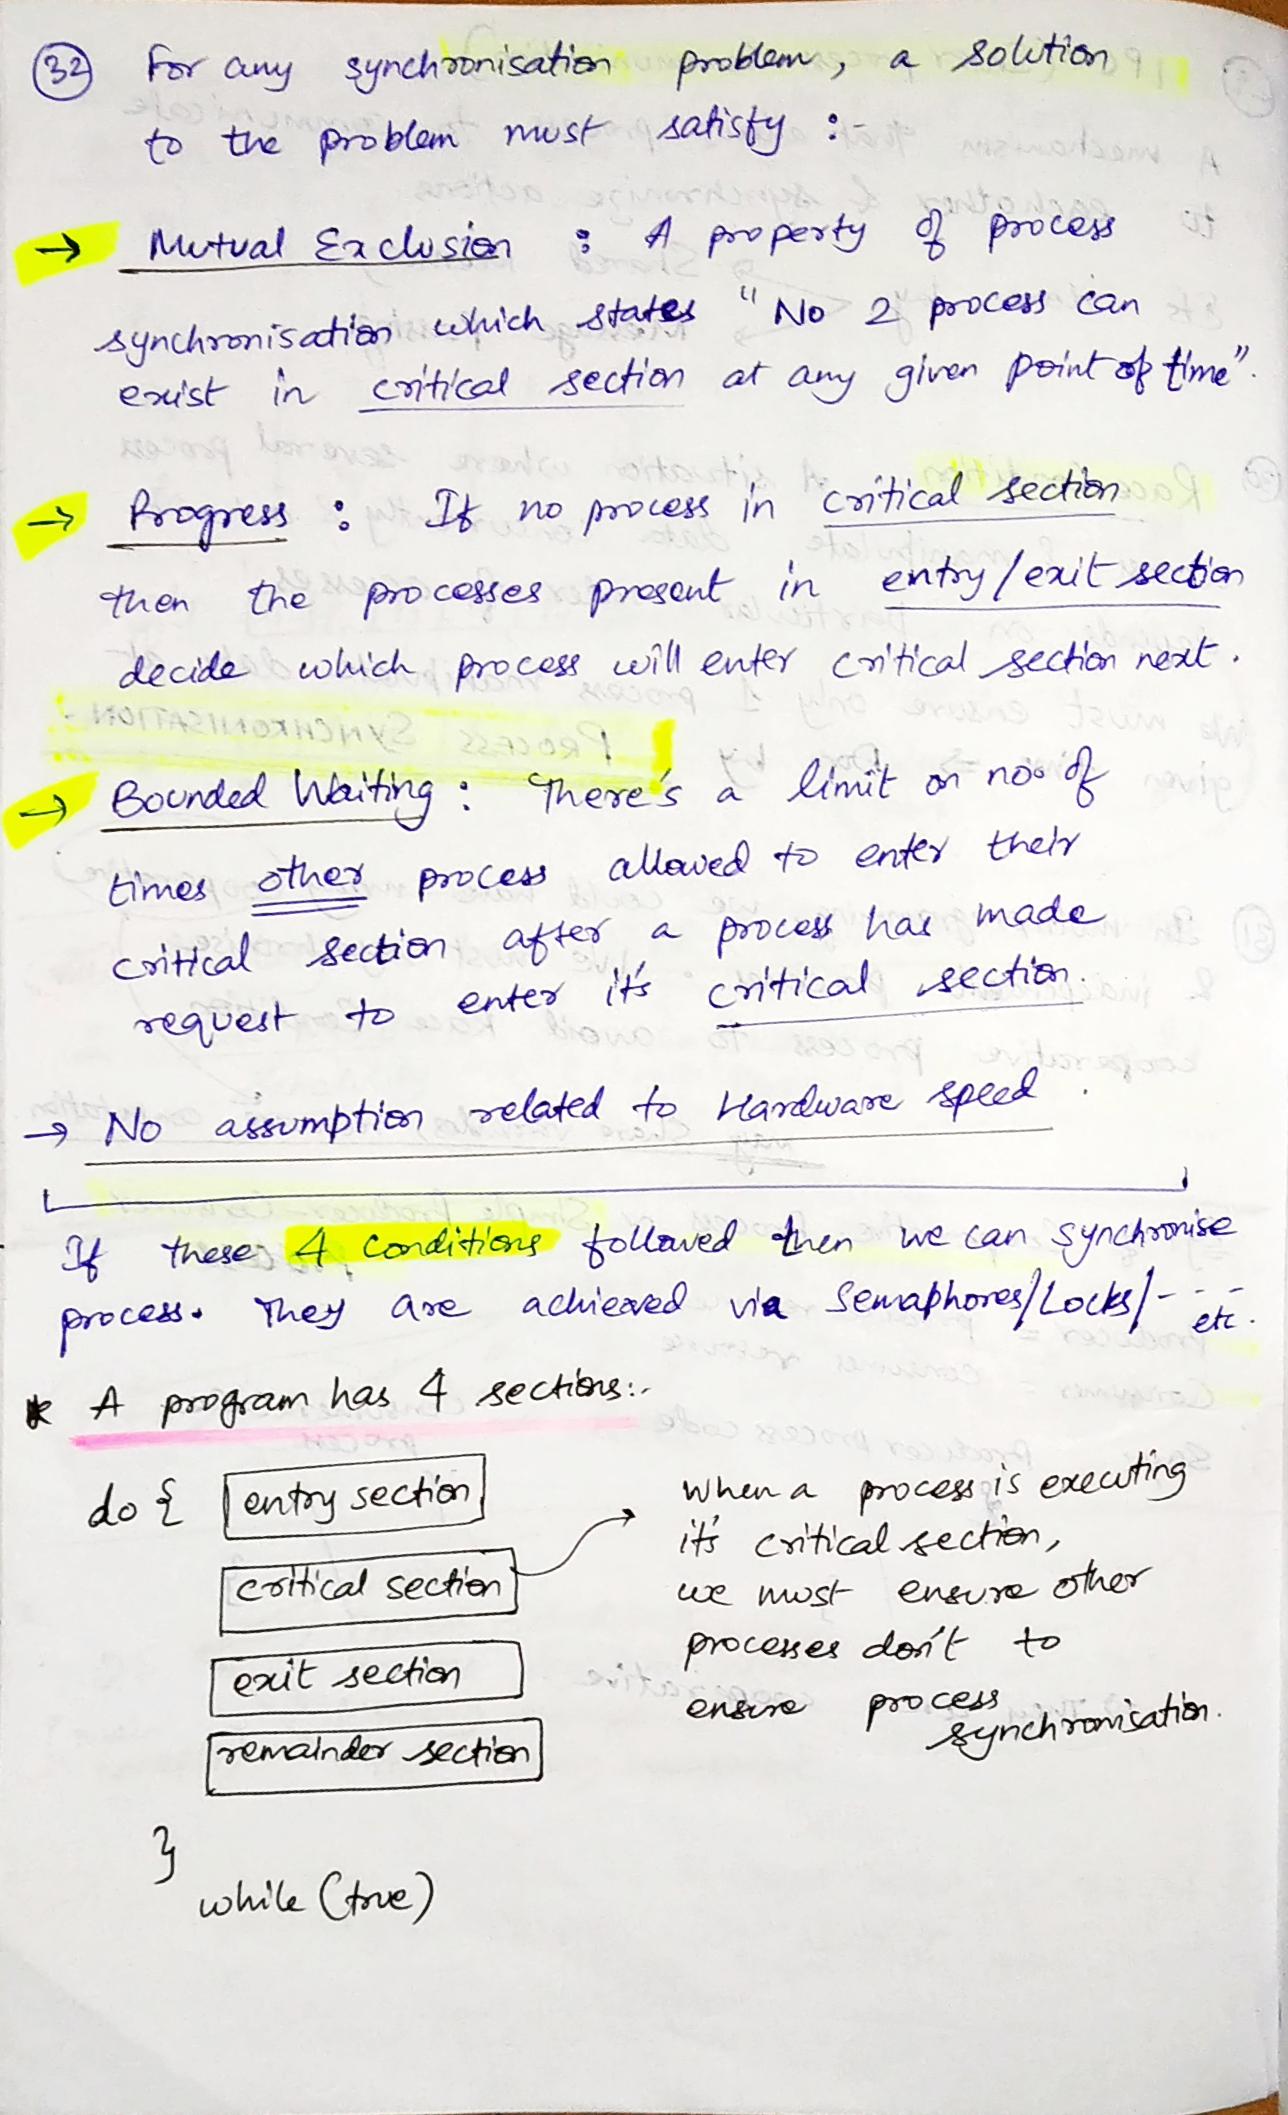 32 For any synchronisation problem, a solution
to the problem must satisfy :-
→ Mutual Exclusion : A property of process
synchronisation which states "No 2 process can
exist in critical section at any given point of time".
→ Progress : If no process in critical section
then the processes present in entry/exit section
decide which process will enter critical section next.
→ Bounded Waiting : There's a limit on no. of
times other process allowed to enter their
critical section after a process has made
request to enter it's critical section.
→ No assumption related to Hardware speed.
If these 4 conditions followed then we can synchronise
process. They are achieved via Semaphores/Locks/--- etc.
* A program has 4 sections:-
do { entry section
critical section
exit section
remainder section
}
while (true)
When a process is executing
it's critical section,
we must ensure other
processes don't to
ensure process
synchronisation.